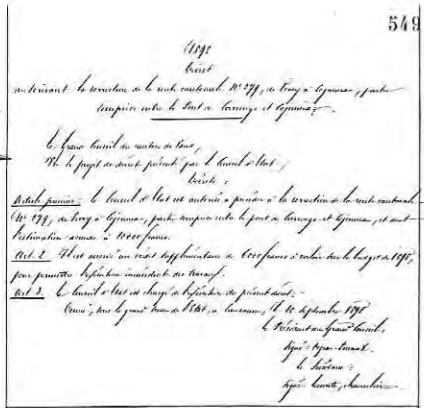 549
1898
Décret
autorisant la correction de la route cantonale N° 279, de à , partie
comprise entre le Pont de et .
Le Grand Conseil du canton de Vaud,
Vu le projet de décret présenté par le Conseil d'Etat,
Décrète :
Article premier. Le Conseil d'Etat est autorisé à procéder à la correction de la route cantonale
N° 279, de à , partie comprise entre le pont de et , et dont
l'estimation à 10000 francs.
Art. 2. Il est un crédit supplémentaire de 6000 francs à sur le budget de 1898,
pour permettre l'exécution immédiate des travaux.
Art. 3. Le Conseil d'Etat est chargé de l'exécution du présent décret.
Donné, sous le grand sceau de l'Etat, à Lausanne, le 10 septembre 1898
Le Président du Grand Conseil,
signé :
le
signé : , chancelier.